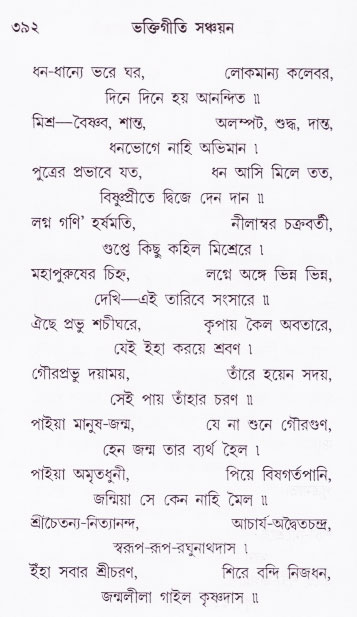 ৩৯২ ভক্তিগীতি সঞ্চয়ন
ধন-ধান্যে ভরে ঘর, লোকমান্য কলেবর,
দিনে দিনে হয় আনন্দিত ॥
মিশ্র—বৈষ্ণব, শান্ত, অলম্পট, শুদ্ধ, দান্ত,
ধনভোগে নাহি অভিমান ।
পুত্রের প্রভাবে যত, ধন আসি মিলে তত,
বিষ্ণুপ্রীতে দ্বিজে দেন দান ॥
লগ্ন গণি’ হর্ষমতি, নীলাম্বর চক্রবর্তী,
গুপ্তে কিছু কহিল মিশ্রেরে ।
মহাপুরুষের চিহ্ন, লগ্নে অঙ্গে ভিন্ন ভিন্ন,
দেখি—এই তারিবে সংসারে ॥
ঐছে প্রভু শচীঘরে, কৃপায় কৈল অবতারে,
যেই ইহা করয়ে শ্রবণ ।
গৌরপ্রভু দয়াময়, তাঁরে হয়েন সদয়,
সেই পায় তাঁহার চরণ ॥
পাইয়া মানুষ-জন্ম, যে না শুনে গৌরগুণ,
হেন জন্ম তার ব্যর্থ হৈল ।
পাইয়া অমৃতধুনী, পিয়ে বিষগর্তপানি,
জন্মিয়া সে কেন নাহি মৈল ॥
শ্রীচৈতন্য-নিত্যানন্দ, আচার্য-অদ্বৈতচন্দ্র,
স্বরূপ-রূপ-রঘুনাথদাস ।
ইঁহা সবার শ্রীচরণ, শিরে বন্দি নিজধন,
জন্মলীলা গাইল কৃষ্ণদাস ॥